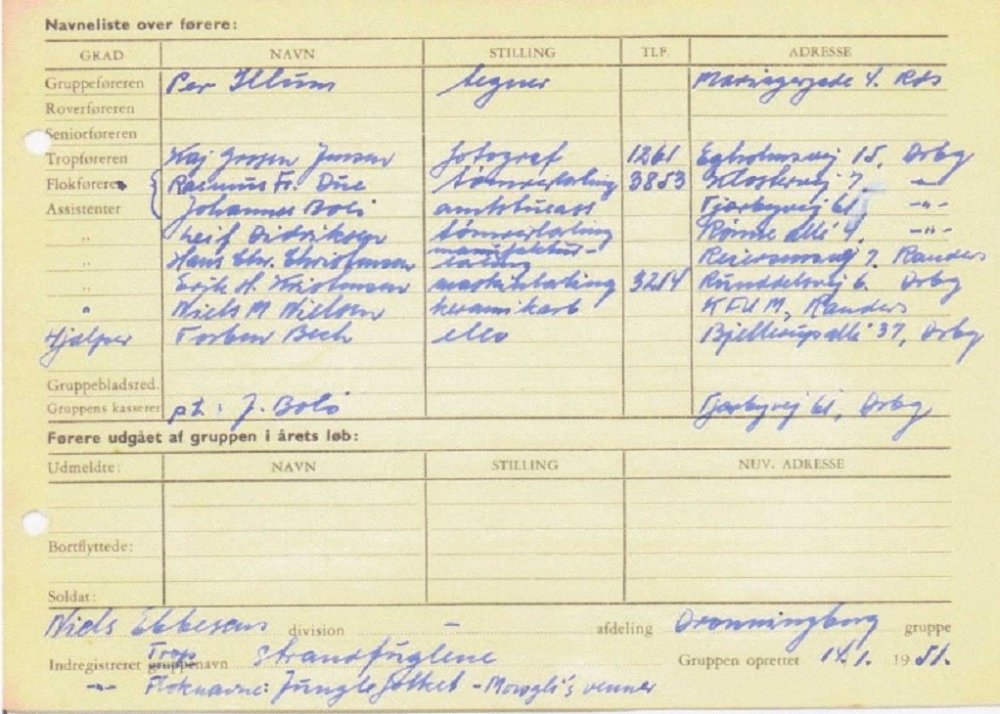 Navneliste over førere:
GRAD NAVN STILLING TLF. ADRESSE
Gruppeføreren Per Illum tegner Mariagergade 4. Rds
Roverføreren
Seniorføreren
Tropføreren Kaj Jensen fotograf 1261 Egholmsvej 15, Drbg
Flokføreren Rasmus Fr. Due tømrerlærling 3853 Klostervej 7. -"-
Assistenter Johannes Bolø Tjærbyvej 61, -"-
" Leif Didriksen tømrerlærling Rønne allé 4, -"-
" Hans Chr. Christensen manufaktur-
lærling 7. Randers
" Erik H. Kristensen maskinlærling 3284 6. Drbg
" Niels M Nielsen keramikarb KFUM, Randers
Hjælper Torben Bech elev Bjellerups allé 37, Drbg
Gruppebladsred.
Gruppens kasserer pt: J. Bolø Tjærbyvej 61, Drbg
Førere udgået af gruppen i årets løb:
Udmeldte: NAVN STILLING NUV. ADRESSE
Bortflyttede:
Soldat:
Niels Ebbesens division - afdeling Dronningborg gruppe
Indregistreret Trops gruppenavn Strandfuglene Gruppen oprettet 14.1. 1951.
-"- Floknavne: Junglefolket - Mowgli's venner